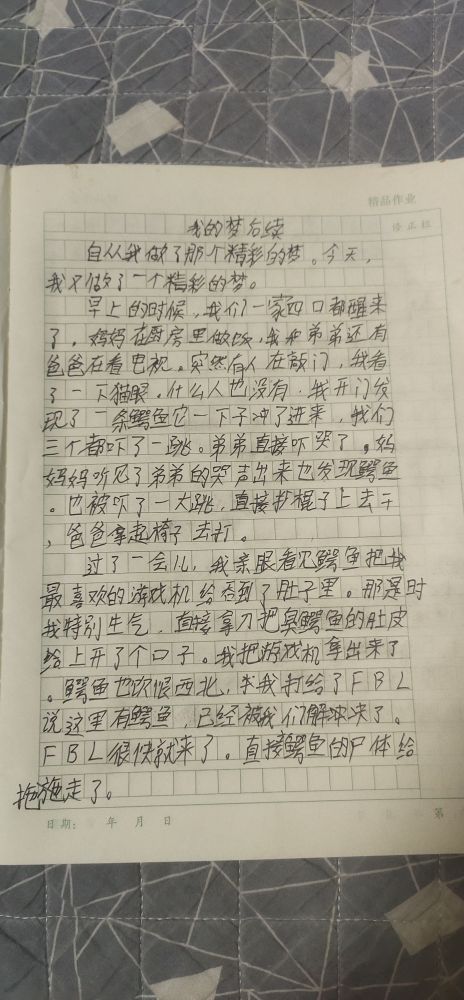 精品作业
修正栏
我的梦后续
自从我做了那个精彩的梦。今天，
我又做了一个精彩的梦。
早上的时候，我们一家四口都醒来
了，妈妈在厨房里做饭，我和弟弟还有
爸爸在看电视。突然有人在敲门，我看
了一下猫眼。什么人也没有，我开门发
现了一条鳄鱼它一下子冲了进来，我们
三个都吓了一跳。弟弟直接吓哭了。妈
妈妈听见了弟弟的哭声出来也发现鳄鱼
。也被吓了一大跳，直接抄棍子上去干
，爸爸拿起椅子去打。
过了一会儿，我亲眼看见鳄鱼把我
最喜欢的游戏机给吞到了肚子里。那是时
我特别生气，直接拿刀把臭鳄鱼的肚皮
给上开了个口子。我把游戏机拿出来了
。鳄鱼也饮恨西北，我打给了FBL
说这里有鳄鱼，已经被我们解决了。
FBL很快就来了。直接鳄鱼的尸体给
拖走了。
日期： 年 月 日
第